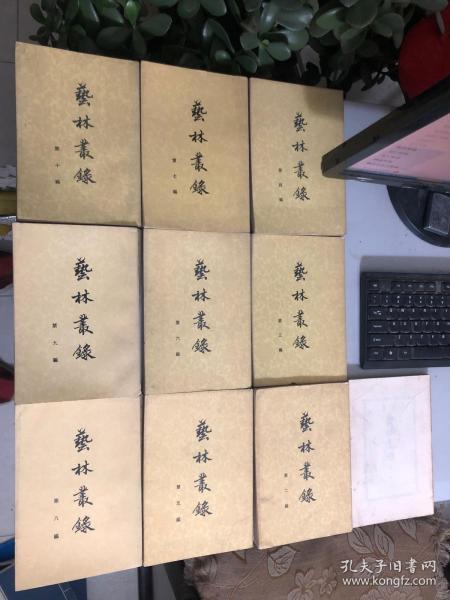 藝林叢錄
第十編
藝林叢錄
第七編
藝林叢錄
第四編
藝林叢錄
第九編
藝林叢錄
第六編
藝林叢錄
第三編
藝林叢錄
第八編
藝林叢錄
第五編
藝林叢錄
第二編
孔夫子旧书网
www.kongfz.com